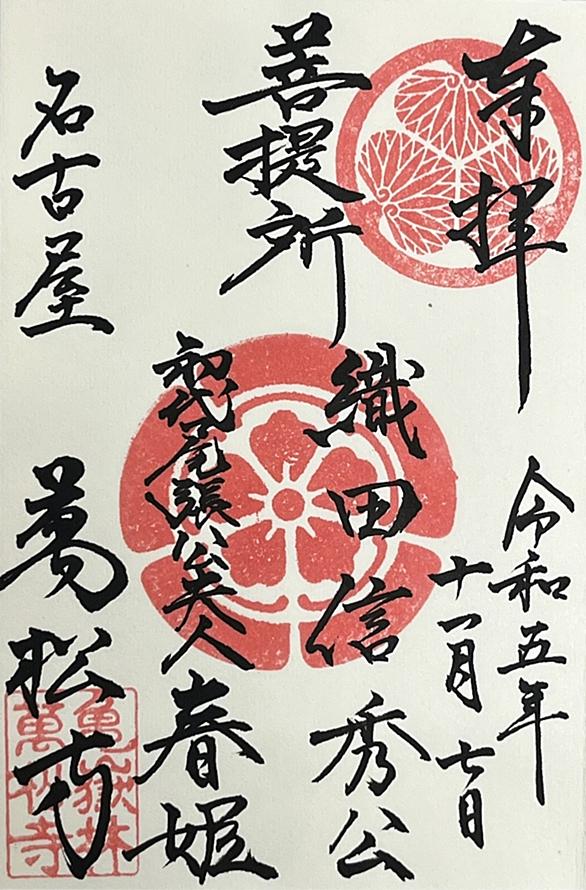 奉拝
令和五年
十一月七日
菩提所
織田信秀公
初代尾張公夫人
春姫
名古屋
萬松寺
亀嶽林
萬松寺